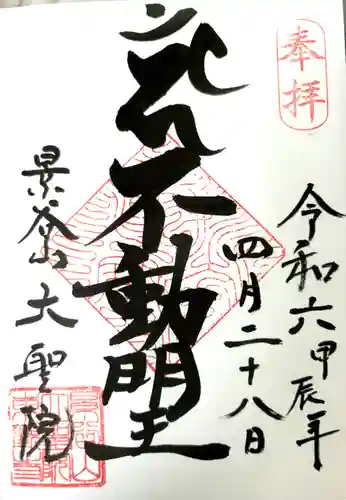 奉拝
令和六甲辰年
四月二十八日
不動明王
景谷山 大聖院